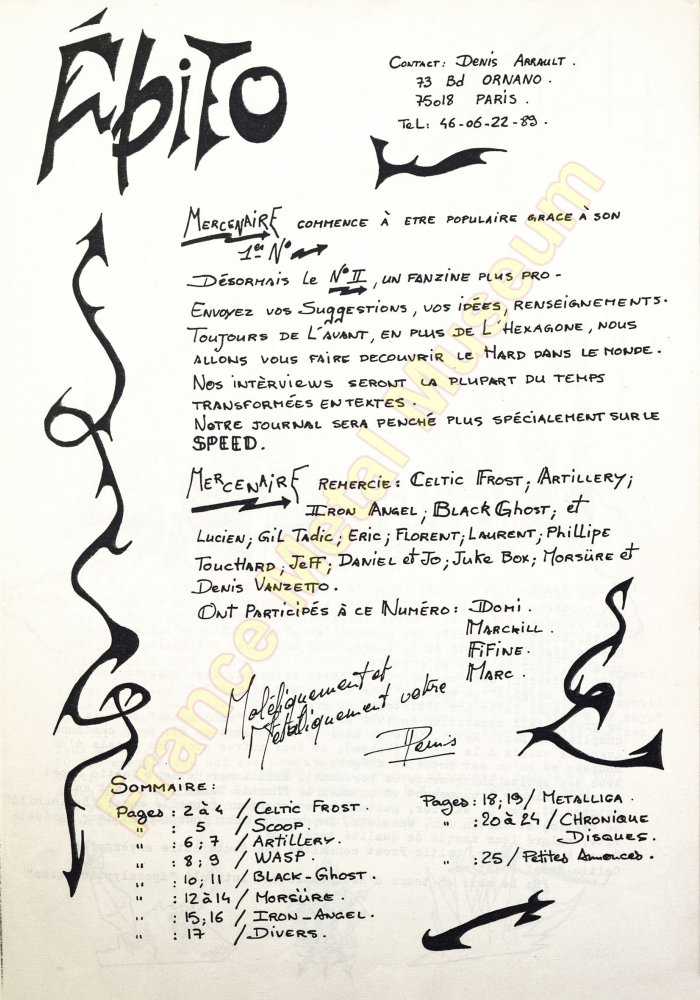 Édito
Contact: Denis Arrault.
73 Bd ORNANO.
75018 PARIS.
Tel: 46-06-22-89.
MERCENAIRE commence à etre populaire grace à son
1er N°
Désormais le N° II, un fanzine plus pro-
Envoyez vos Suggestions, vos idées, renseignements.
Toujours de l'avant, en plus de l'Hexagone, nous
allons vous faire decouvrir le Hard dans le monde.
Nos intèrviews seront la plupart du temps
transformées en textes.
Notre journal sera penché plus spécialement sur le
SPEED.
MERCENAIRE remercie: Celtic Frost; Artillery;
Iron Angel; Black Ghost; et
Lucien; Gil Tadic; Eric; Florent; Laurent; Phillipe
Touchard; Jeff; Daniel et Jo; Juke Box; Morsüre et
Denis Vanzetto.
Ont Participés à ce Numéro: Domi.
Marckill.
Fifine.
Marc.
Maléfiquement et
Métaliquement votre
Denis
Sommaire:
Pages: 2 à 4 / Celtic Frost.
" : 5 / Scoop.
" : 6; 7 / Artillery.
" : 8; 9 / WASP.
" : 10; 11 / Black-Ghost.
" : 12 à 14 / Morsüre.
" : 15; 16 / Iron-Angel.
" : 17 / Divers.
Pages: 18; 19 / Metalliga.
" : 20 à 24 / Chronique
Disques.
" : 25 / Petites Annonces.
France Metal Museum